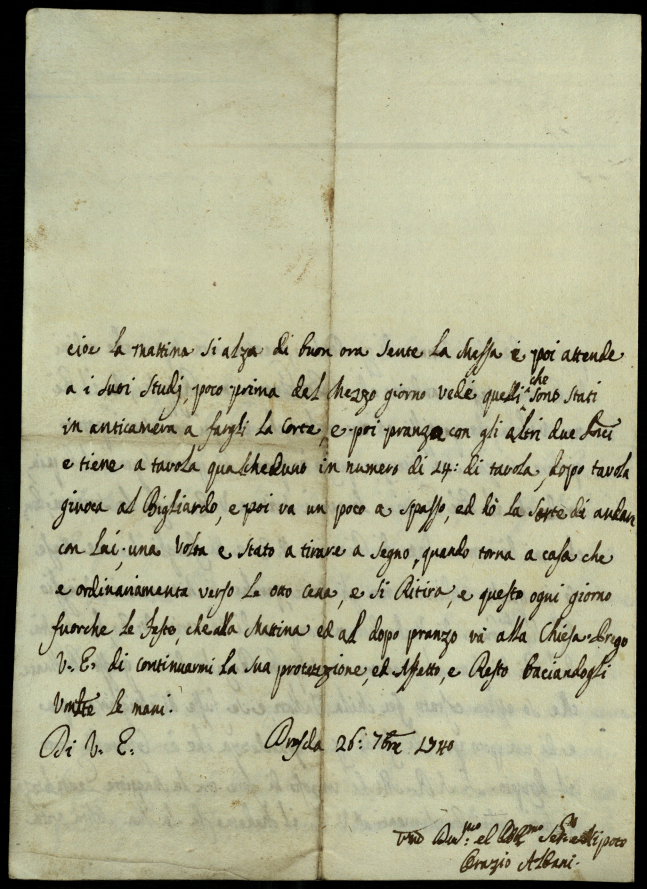 cioe la mattina si alza di buon ora sente la Messa e poi attende
a i suoi studj, poco prima del Mezzo giorno vede quelli che sono stati
in anticamera a fargli la Corte, e poi pranza con gli altri due
e tiene a tavola qualcheduno in numero di 14: di tavola, dopo tavola
giuoca al Bigliardo, e poi va un poco a spasso, ed hò la Sorte di andare
con Lui, una volta e stato a tirare a segno, quando torna a casa che
e ordinariamente verso le otto cena, e si Ritira, e questo ogni giorno
fuorche le feste, che alla Mattina ed al dopo pranzo và alla Chiesa. Prego
V. E. di continuarmi la sua protetzione, ed Affetto, e Resto baciandogli
le mani.
Di V. E. Dresda 26: 7bre 1740
Nipote
Orazio Albani.